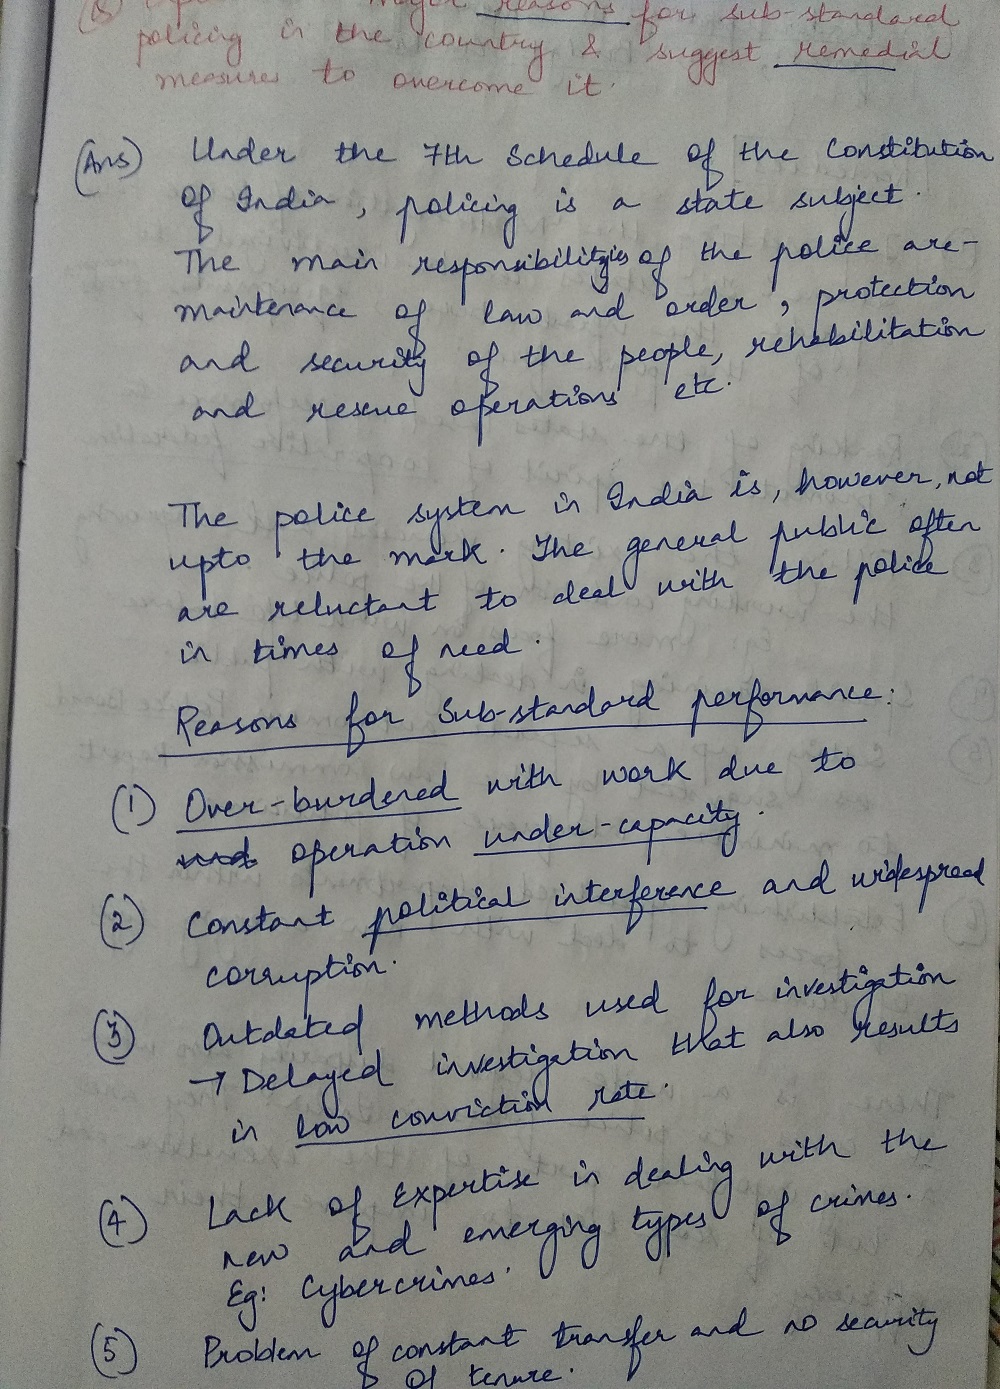 reasons for sub-standard
policing in the country & suggest remedial
measures to overcome it.
(Ans) Under the 7th Schedule of the Constitution
of India, policing is a state subject.
The main responsibilities of the police are-
maintenance of law and order, protection
and security of the people, rehabilitation
and rescue operations etc.
The police system in India is, however, not
upto the mark. The general public often
are reluctant to deal with the police
in times of need.
Reasons for Sub-standard performance:
(1) Over-burdened with work due to
operation under-capacity.
(2) Constant political interference and widespread
corruption.
(3) Outdated methods used for investigation
→ Delayed investigation that also results
in low conviction rate.
(4) Lack of Expertise in dealing with the
new and emerging types of crimes.
Eg: Cybercrimes.
(5) Problem of constant transfer and no security
of tenure.